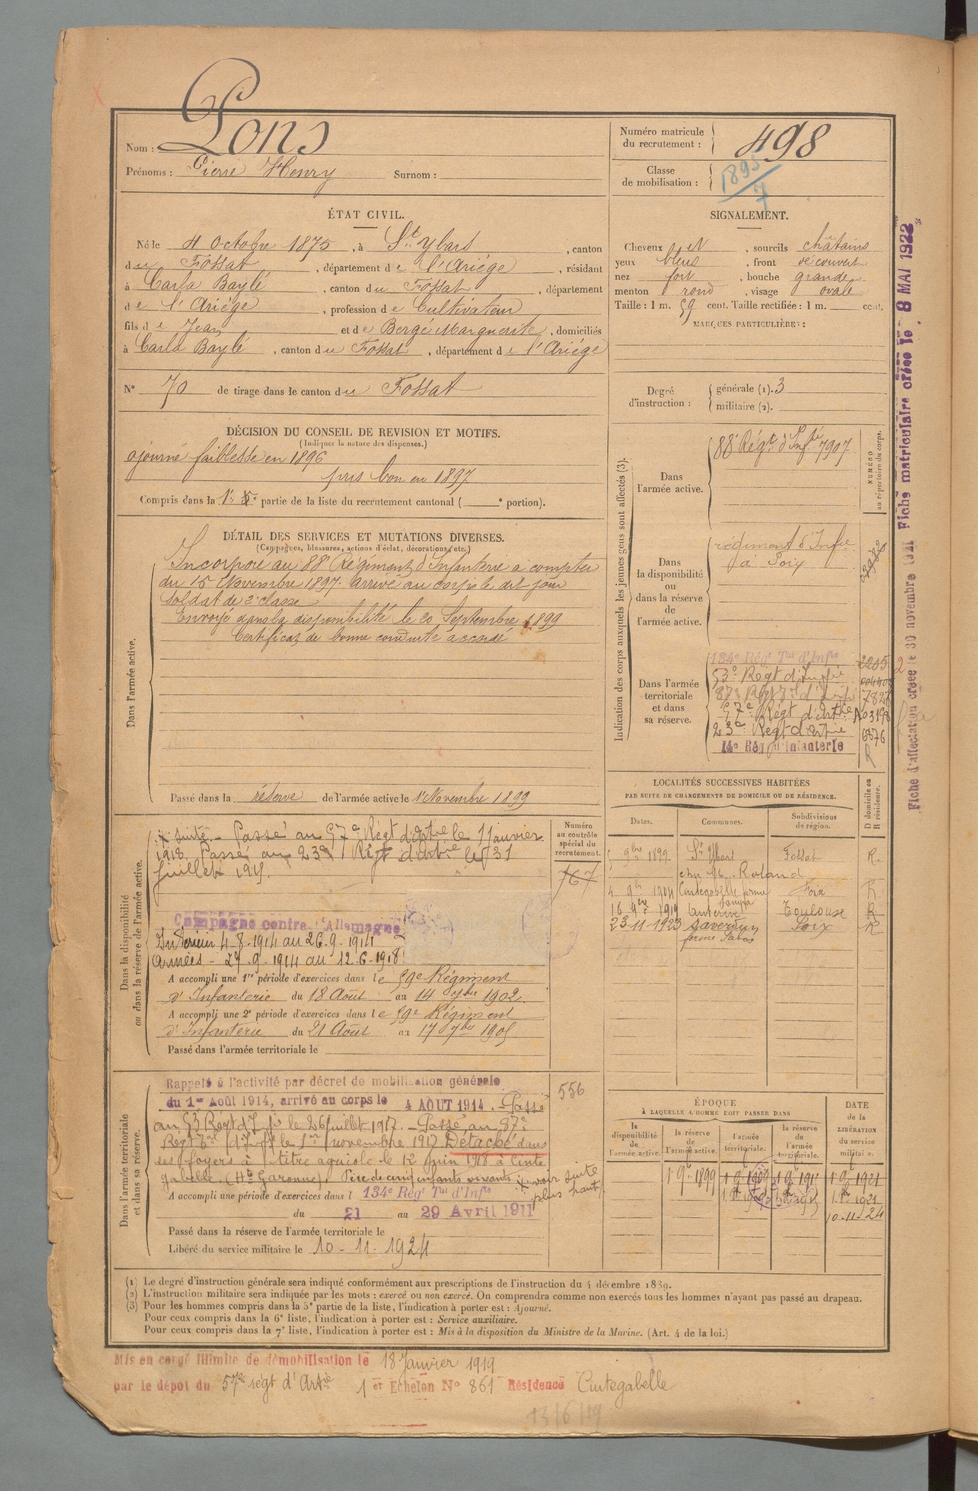 Nom : Pons
Prénoms : Pierre Henry Surnom :
Numéro matricule du recrutement : 498
Classe de mobilisation : 1895/7
ÉTAT CIVIL.
Né le 4 Octobre 1875, à St Ybars, canton
du Fossat, département de l'Ariége, résidant
à Carla Baylé, canton du Fossat, département
de l'Ariége, profession de Cultivateur
fils de Jean et de Bergé Marguerite, domiciliés
à Carla Baylé, canton du Fossat, département de l'Ariége
N° 70 de tirage dans le canton du Fossat
SIGNALEMENT.
Cheveux et, sourcils châtains
yeux bleus, front découvert
nez fort, bouche grande
menton rond, visage ovale
Taille : 1 m. 59 cent. Taille rectifiée : 1 m. cent.
MARQUES PARTICULIÈRES :
Degré d'instruction : générale (1). 3
militaire (2).
DÉCISION DU CONSEIL DE REVISION ET MOTIFS.
(Indiquer la nature des dispenses.)
ajourné faiblesse en 1896
pris bon en 1897
Compris dans la 1e partie de la liste du recrutement cantonal ( e portion).
DÉTAIL DES SERVICES ET MUTATIONS DIVERSES.
(Campagnes, blessures, actions d'éclat, décorations, etc.)
Dans l'armée active.
Incorporé au 88e Régiment d'Infanterie à compter
du 15 Novembre 1897. Arrivé au corps le dit jour
soldat de 2e classe
Envoyé dans la disponibilité le 20 Septembre 1899
Certificat de bonne conduite accordé
Passé dans la réserve de l'armée active le 1er Novembre 1899
Indication des corps auxquels les jeunes gens sont affectés (3).
NUMÉRO au répertoire du corps.
Dans l'armée active.
88e Régt d'Infie 7907
Dans la disponibilité ou dans la réserve de l'armée active.
régiment d'Infie
à Foix
Dans l'armée territoriale et dans sa réserve.
134e Rég' Tal d'Infie
53e Régt d'Infie
87e Régt d'Infie 7827
57e Régt d'Artie
23e Régt d'artie 6876
14e Rég' d'Infanterie
LOCALITÉS SUCCESSIVES HABITÉES
PAR SUITE DE CHANGEMENTS DE DOMICILE OU DE RÉSIDENCE.
Dates. Communes. Subdivisions de région. D domicile ou R résidence.
9bre 1899 St Ybars Foissat R.
chez M. Roland
1904 Cintegabelle ferme Foix R
16 9bre 1919 Toulouse R
23-11-1923 Saverdun Foix R
Dans la disponibilité ou dans la réserve de l'armée active.
Numéro au contrôle spécial du recrutement.
767
suite - Passé au 57e Régt d'artie le 1 janvier
1918. Passé au 23e Régt d'artie le 31
juillet
Campagne contre l'Allemagne
Intérieur 4-8-1914 au 26-9-1914
Armées - 27-9-1914 au 12-6-1918
A accompli une 1re période d'exercices dans le 59e Régiment
d'Infanterie du 18 Août au 14 7bre 1902
A accompli une 2e période d'exercices dans le 59e Régiment
d'Infanterie du 21 Août au 17 7bre 1905
Passé dans l'armée territoriale le
Dans l'armée territoriale et dans sa réserve.
556
Rappelé à l'activité par décret de mobilisation générale
du 1er Août 1914, arrivé au corps le 4 AOUT 1914. Passé
au 53e Régt d'Infie le 26 juillet 1917. Passé au 87e
Régt le 1er novembre 1917 Détaché dans
ses foyers à titre agricole le 12 juin 1918 à Cinte
gabelle (Hte Garonne). Père de cinq enfants vivants
voir suite plus haut
A accompli une période d'exercices dans l 134e Rég' Tal d'Infie
du 21 au 29 Avril 1911
Passé dans la réserve de l'armée territoriale le
Libéré du service militaire le 10-11-1924
ÉPOQUE
À LAQUELLE L'HOMME DOIT PASSER DANS
la disponibilité de l'armée active.
la réserve de l'armée active.
l'armée territoriale.
la réserve de l'armée territoriale.
DATE de la LIBÉRATION du service militaire.
1 9e 1899
10-11-24
(1) Le degré d'instruction générale sera indiqué conformément aux prescriptions de l'instruction du 4 décembre 1889.
(2) L'instruction militaire sera indiquée par les mots : exercé ou non exercé. On comprendra comme non exercés tous les hommes n'ayant pas passé au drapeau.
(3) Pour les hommes compris dans la 5e partie de la liste, l'indication à porter est : Ajourné.
Pour ceux compris dans la 6e liste, l'indication à porter est : Service auxiliaire.
Pour ceux compris dans la 7e liste, l'indication à porter est : Mis à la disposition du Ministre de la Marine. (Art. 4 de la loi.)
Mis en congé illimité de démobilisation le 18 Janvier 1919
par le dépôt du 57e régt d'Artie 1er Echelon N° 861 Résidence Cintegabelle
13/6/19
Fiche d'affectation créée le 30 novembre 1921 Fiche matriculaire créée le 8 MAI 1922